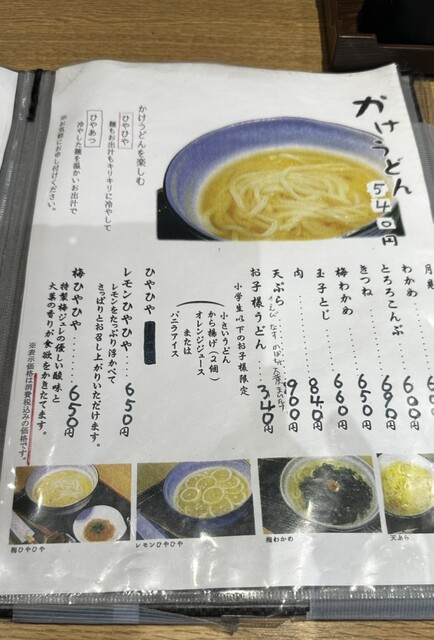 かけうどん
540円
かけうどんを楽しむ
ひやひや
麺もお出汁もキリキリに冷やして
ひやあつ
冷やした麺を温かいお出汁で
※お気軽にお申し付けください。
月見
わかめ
600
とろろこんぶ
690円
きつね
580円
梅わかめ
660
玉子とじ
840円
肉
900円
天ぷら
お子様うどん
340円
小学生以下のお子様限定
小さいうどん
から揚げ(2個)
オレンジジュース
または
バニラアイス
ひやひや
レモンひやひや
650円
レモンをたっぷり浮かべて
さっぱりとお召し上がりいただけます。
梅ひやひや
650円
特製梅ジュレの優しい酸味と
大葉の香りが食欲をかきたてます。
※表示価格は消費税込みの価格です。
梅ひやひや
レモンひやひや
梅わかめ
天ぷら